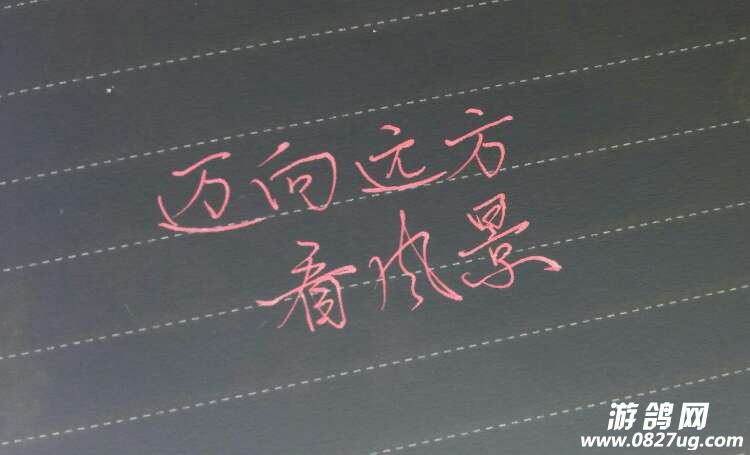 迈向远方
看风景
游鸽网
www.0827ug.com